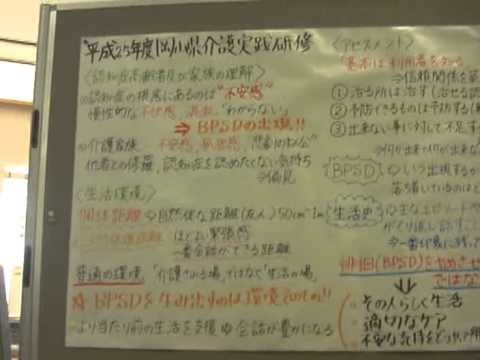 平成25年度岡山県介護実践研修
〈認知症高齢者及び家族の理解〉
⇨認知症の根底にあるのは"不安感"
慢性的な不快感、混乱、「わからない」
⇒BPSDの出現!!
⇨介護家族 不安感、
他者との 認知症を認めたくない気持ち
⇨偏見
〈生活環境〉
個体距離⇨自然体な距離(友人)50cm~1m
ほどよい緊張感
一番会話ができる距離
普通の環境「介護される場」ではなく「生活の場」
☆BPSDを生み出すのは環境
より当たり前の生活を支援⇨会話が豊かになる
〈アセスメント〉
"基本は利用者を知る
⇒信頼関係を築
①治る所は治す(治せる認
②予防できるものは予防する(
③出来ない事に対して不足す
⇨何が出来て何が出来な
BPSD ⇨いつ出現するか
落ち着いているのはど
生活史 ⇨主なエピソードや
がくり返し話すこ
⇨一番印象に残って
(BPSD)をやめさせ
ではな
・その人らしく生活
・適切なケア
・不安な気持をどう